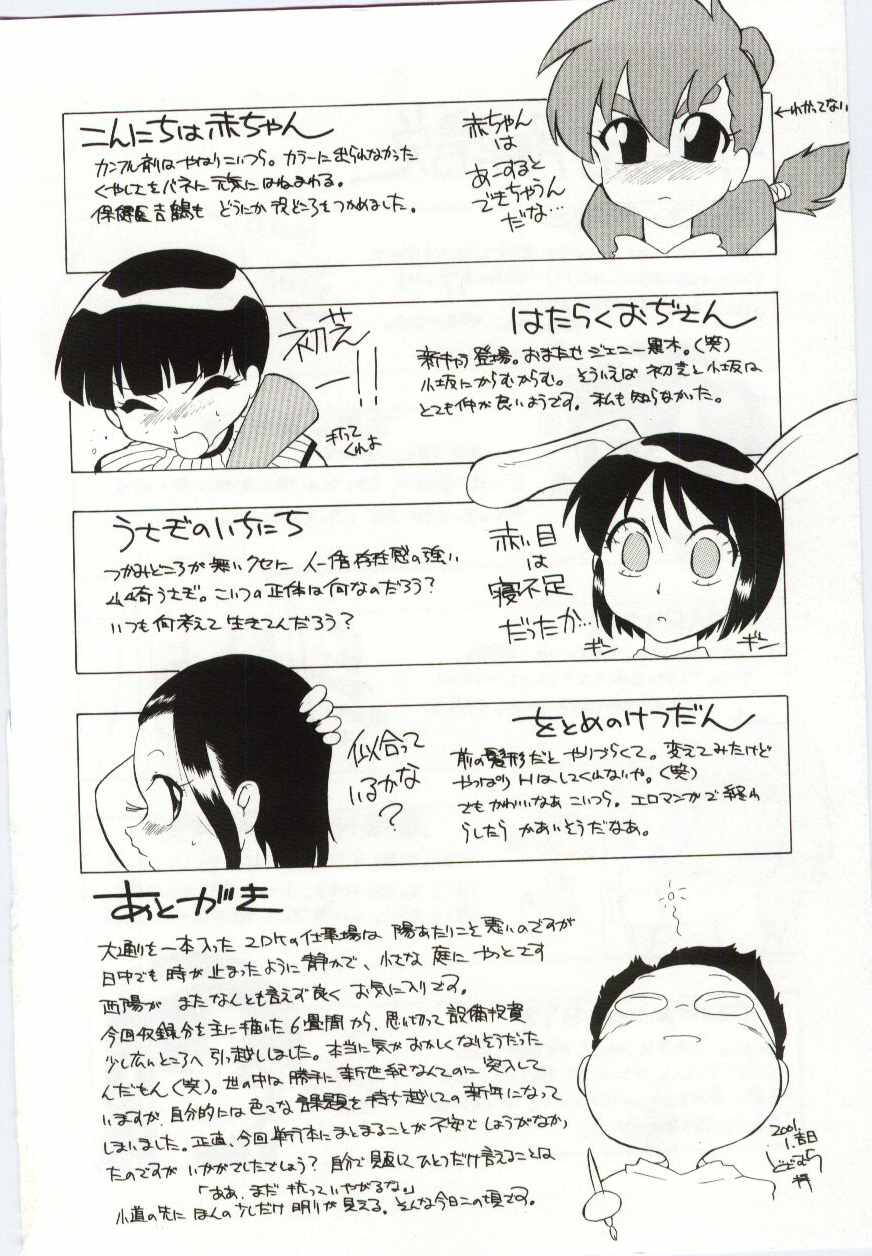 こんにちは赤ちゃん
カンフル剤はやはりこいつら。カラーに出られなかった
くやしさをバネに元気にはねまわる。
保健医吉鶴も どうにか 見どころをつかめました。
赤ちゃん
は
あーすると
できちゃうん
だな…
←わかってない
はたらくおぢさん
新キャラ登場。おまたせジェニー黒木。(笑)
小坂にからむからむ。そういえば 初芝と小坂は
とても仲が良いようです。私も知らなかった。
初芝
ーー!!
打って
くれよ
うさぞのいちにち
つかみどころが無いクセに 人一倍存在感の強い
山崎うさぞ。こいつの正体は何なのだろう?
いつも何考えて生きてんだろう?
赤い目
は
寝不足
だったか…
ギン
ギン
をとめのけつだん
前の髪形だと やりづらくて。変えてみたけど
やっぱりHはしてくれないや。(笑)
でも かわいいなあ こいつら。エロマンガで終わ
らしたら かあいそうだなあ。
似合って
いるかな
?
あとがき
大通りを一本入った 2DKの仕事場は 陽あたりこそ悪いのですが
日中でも 時が止まったように 静かで、小さな 庭に やっとです
西陽が またなんとも言えず良く お気に入りです。
今回収録分を主に描いた6畳間から、思い切って設備投資
少し広いところへ 引っ越ししました。本当に気がおかしくなりそうだった
んだもん(笑)。世の中は勝手に新世紀なんてのに突入して
いますが、自分的には色々な課題を持ち越しての新年になって
しまいました。正直、今回単行本にまとまることが不安でしょうがなかっ
たのですが いかがでしたでしょう? 自分で見返してひとつだけ言えることは
「ああ、まだ 抗っていやがるな。」
小道の先に ほんの少しだけ 明りが見える。そんな今日この頃です。
2001.
1.吉日